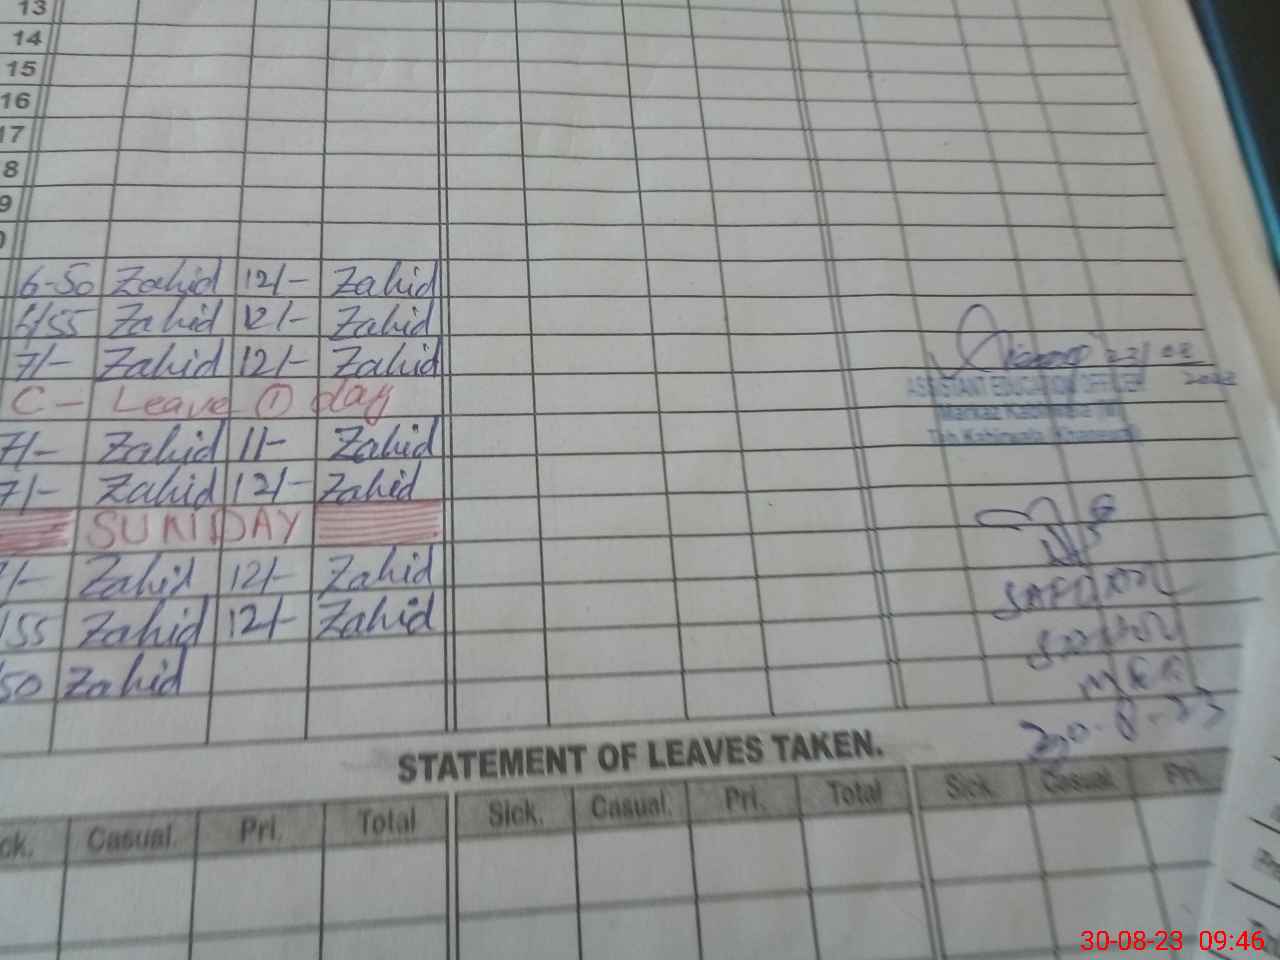 13
14
15
16
17
8
9
6-50 Zahid 12/- Zahid
6/55 Zahid 12/- Zahid
7/- Zahid 12/- Zahid
C - Leave ① day
7/- Zahid 11/- Zahid
7/- Zahid 12/- Zahid
SUNDAY
/- Zahid 12/- Zahid
/55 Zahid 12/- Zahid
50 Zahid
ASSISTANT EDUCATION OFFICER
Markaz
30-8-23
STATEMENT OF LEAVES TAKEN.
ck. Casual. Pri. Total Sick. Casual. Pri. Total Sick. Casual. Pri.
30-08-23 09:46